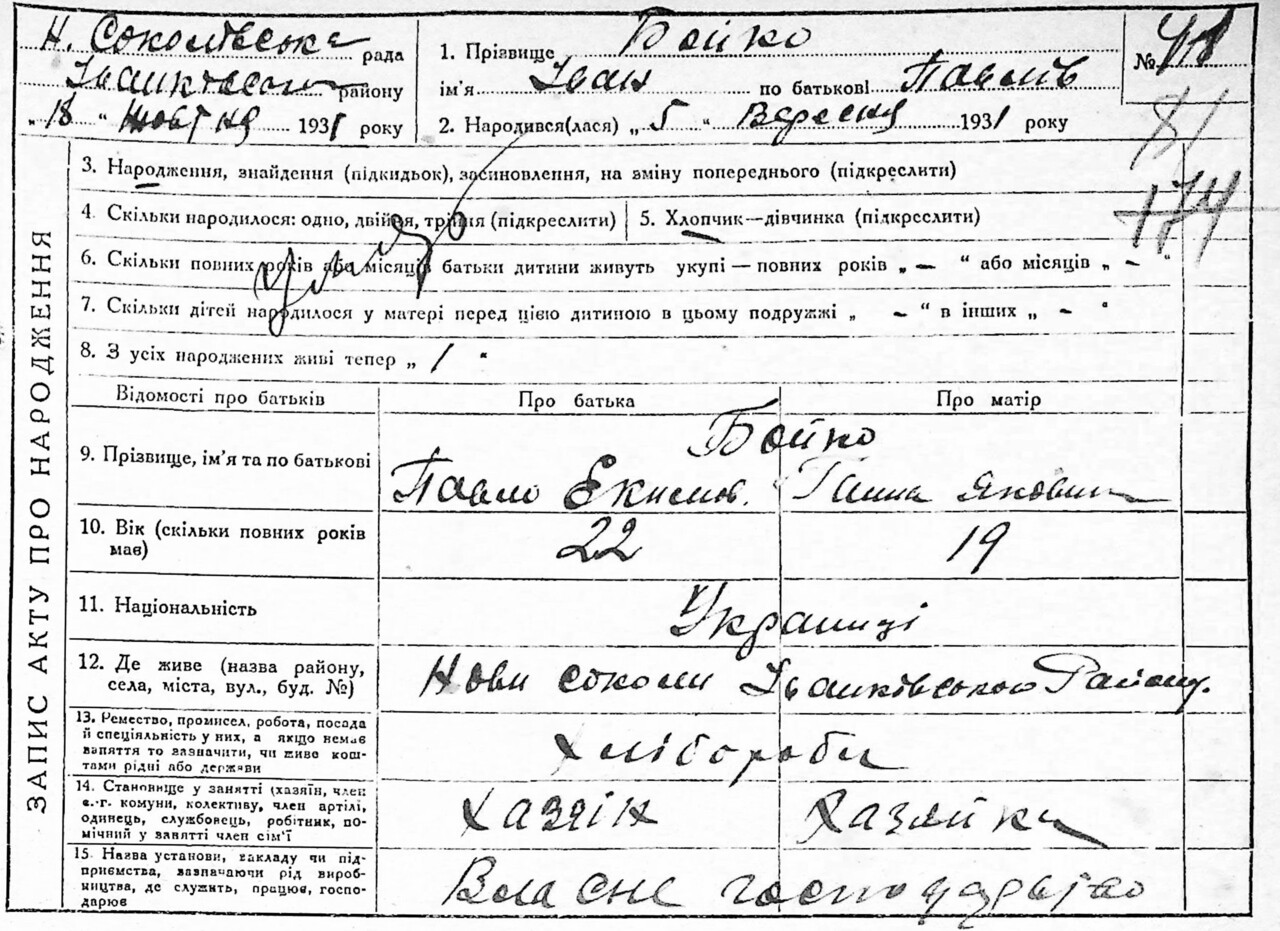 Н. Соколівська рада
Іванківського району
„ 18 “ жовтня 1931 року
1. Прізвище Бойко
ім'я Іван по батькові Павлів
2. Народився(лася) „ 5 “ Вересня 1931 року
№ 48
81
174
ЗАПИС АКТУ ПРО НАРОДЖЕННЯ
3. Народження, знайдення (підкидьок), засиновлення, на зміну попереднього (підкреслити)
4. Скільки народилося: одно, двійня, трійня (підкреслити)
5. Хлопчик—дівчинка (підкреслити)
6. Скільки повних років або місяців батьки дитини живуть укупі — повних років „ – “ або місяців „ – “
7. Скільки дітей народилося у матері перед цією дитиною в цьому подружжі „ – “ в інших „ – “
8. З усіх народжених живі тепер „ 1 “
Відомості про батьків
Про батька
Про матір
9. Прізвище, ім'я та по батькові
Бойко
Павло Екимов. Ганна Яковин
10. Вік (скільки повних років
має)
22
19
11. Національність
Українці
12. Де живе (назва району,
села, міста, вул., буд. №)
Нови соколи Іванківського Району.
13. Ремество, промисел, робота, посада
й спеціяльність у них, а якщо немає
заняття то зазначити, чи живе кош-
тами рідні або держави
Хлібороби
14. Становище у занятті (хазяїн, член
с.-г. комуни, колективу, член артілі,
одинець, службовець, робітник, по-
мічний у занятті член сім'ї
Хазяїн
Хазяйка
15. Назва установи, закладу чи під-
приємства, зазначаючи рід вироб-
ництва, де служить, працює, госпо-
дарює
Власне господарство